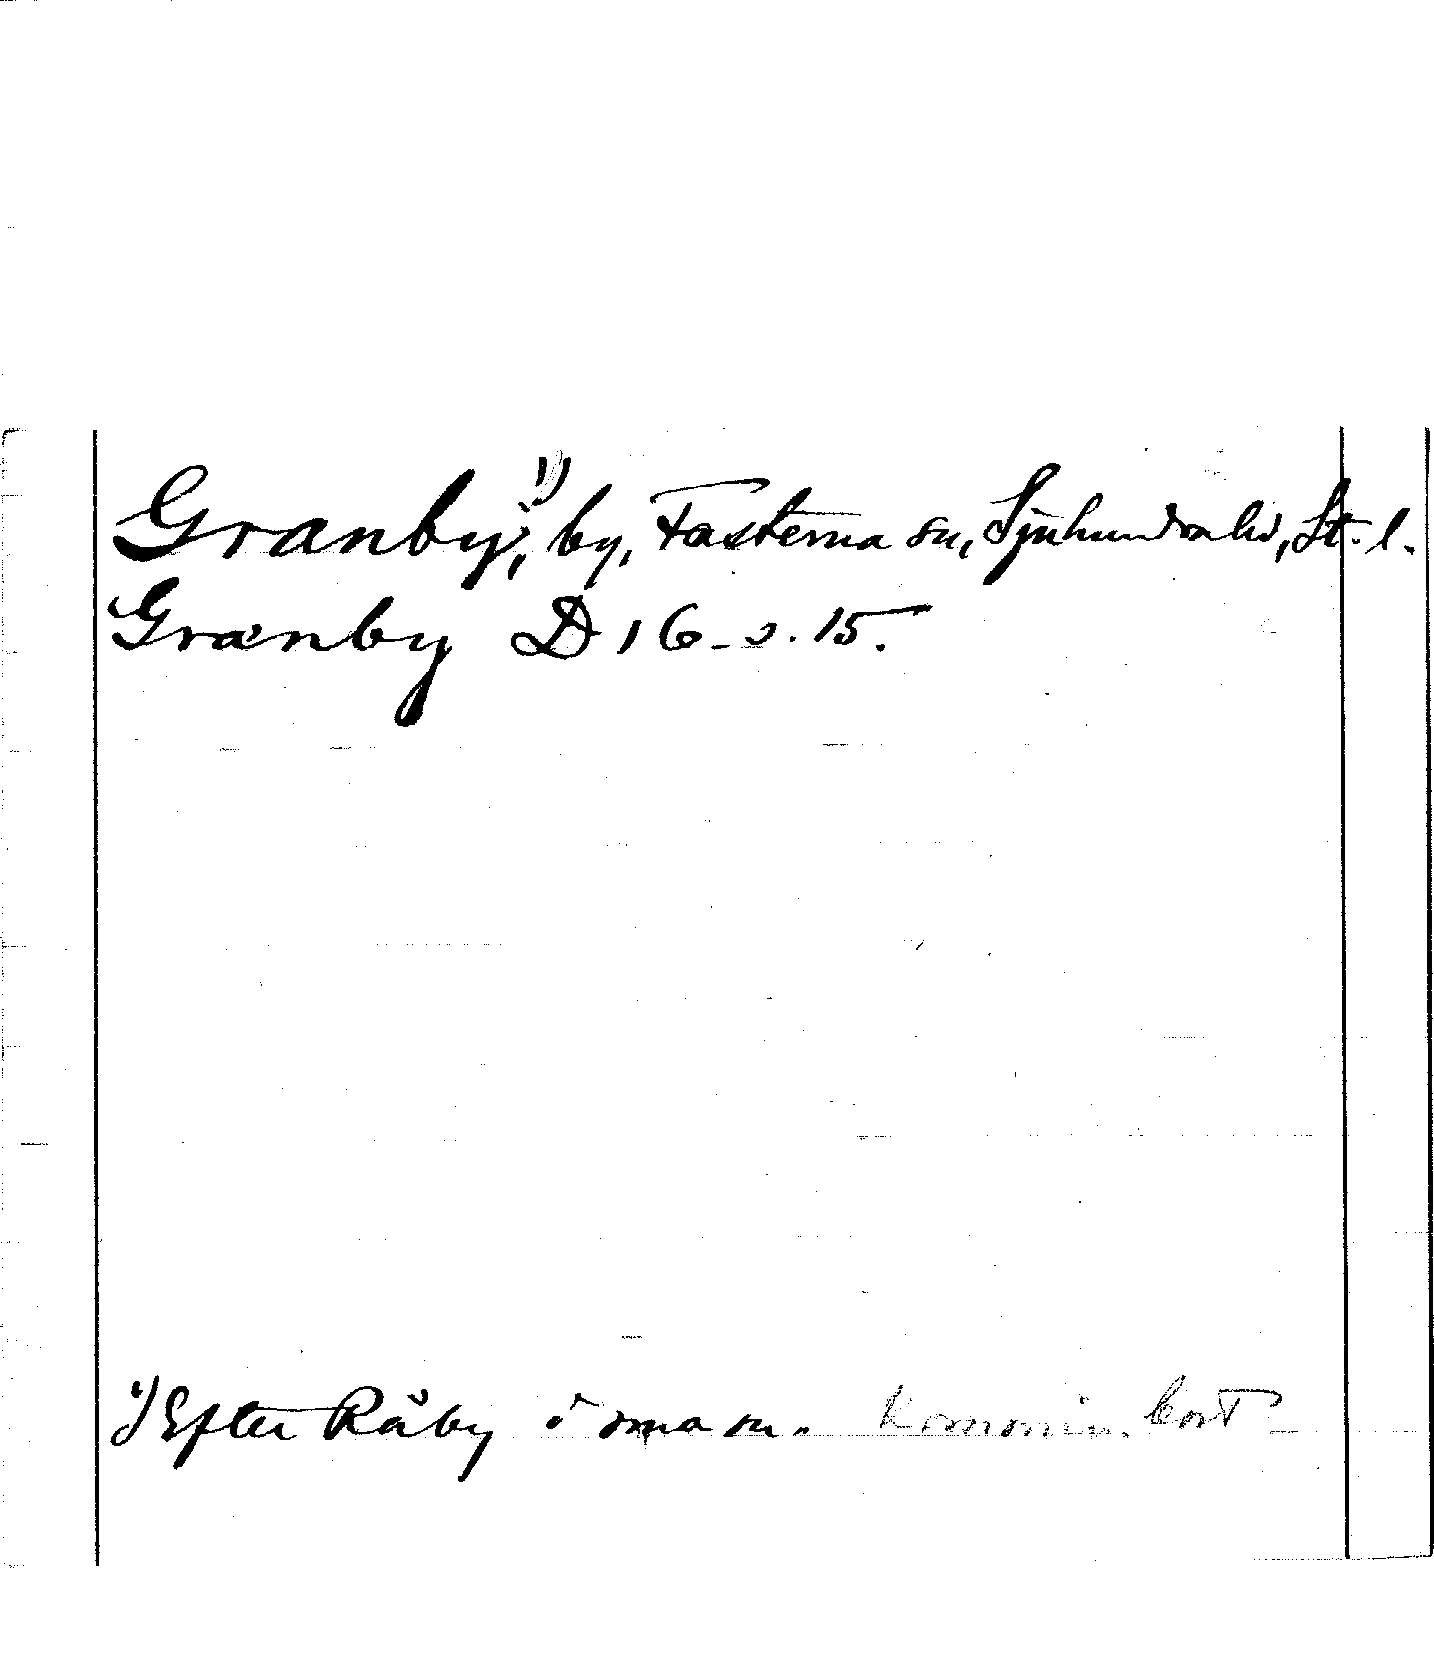 Granby,¹⁾ by, Fasterna sn, Sjuhundra hd, St. l.
Grænby D 16 - s. 15.
¹⁾ Efter Råby i sma sn. Kommin. bort